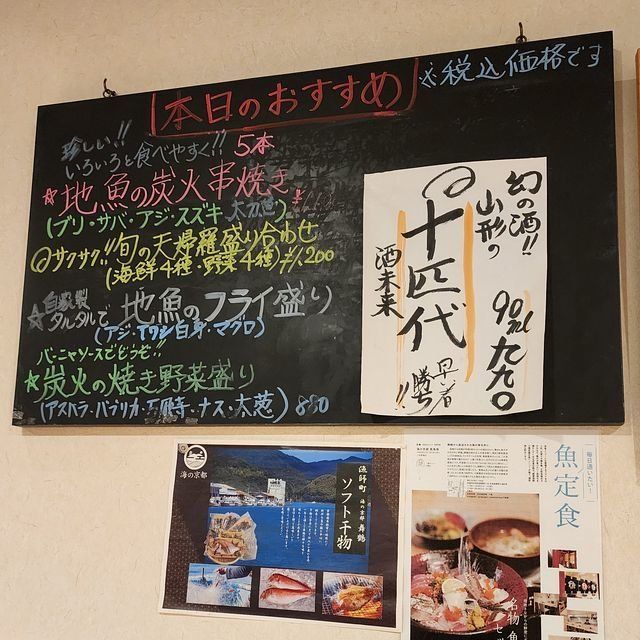 本日のおすすめ
※税込価格です
珍しい!!
いろいろと食べやすく!! 5本
☆地魚の炭火串焼き
(ブリ・サバ・アジ・スズキ 太刀魚)
サクサク!!旬の天婦羅盛り合わせ
(海鮮4種・野菜4種) ¥1,200
自家製
☆タルタルで 地魚のフライ盛り
(アジ・イワシ 白身・マグロ)
バーニャソースでどうぞ!!
☆炭火の焼き野菜盛り
ナス・太葱) 880
幻の酒!!
山形の
十四代
酒未来
90ml 九九〇
早い者勝ち!!
海の京都
漁師町
海の京都 舞鶴
ソフト干物
毎日通いたい!
魚定食